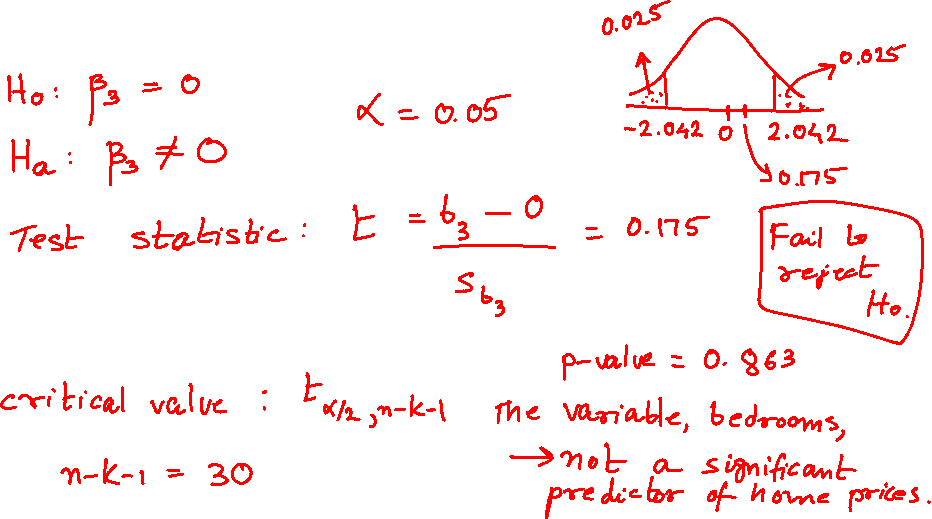 H₀: β₃ = 0
Hₐ: β₃ ≠ 0
α = 0.05
0.025
0.025
-2.042 0 2.042
0.175
Test statistic: t = b₃ - 0 / S_b₃ = 0.175
Fail to
reject
H₀.
critical value : t_α/2, n-k-1
n-k-1 = 30
p-value = 0.863
The variable, bedrooms,
→ not a significant
predictor of home prices.